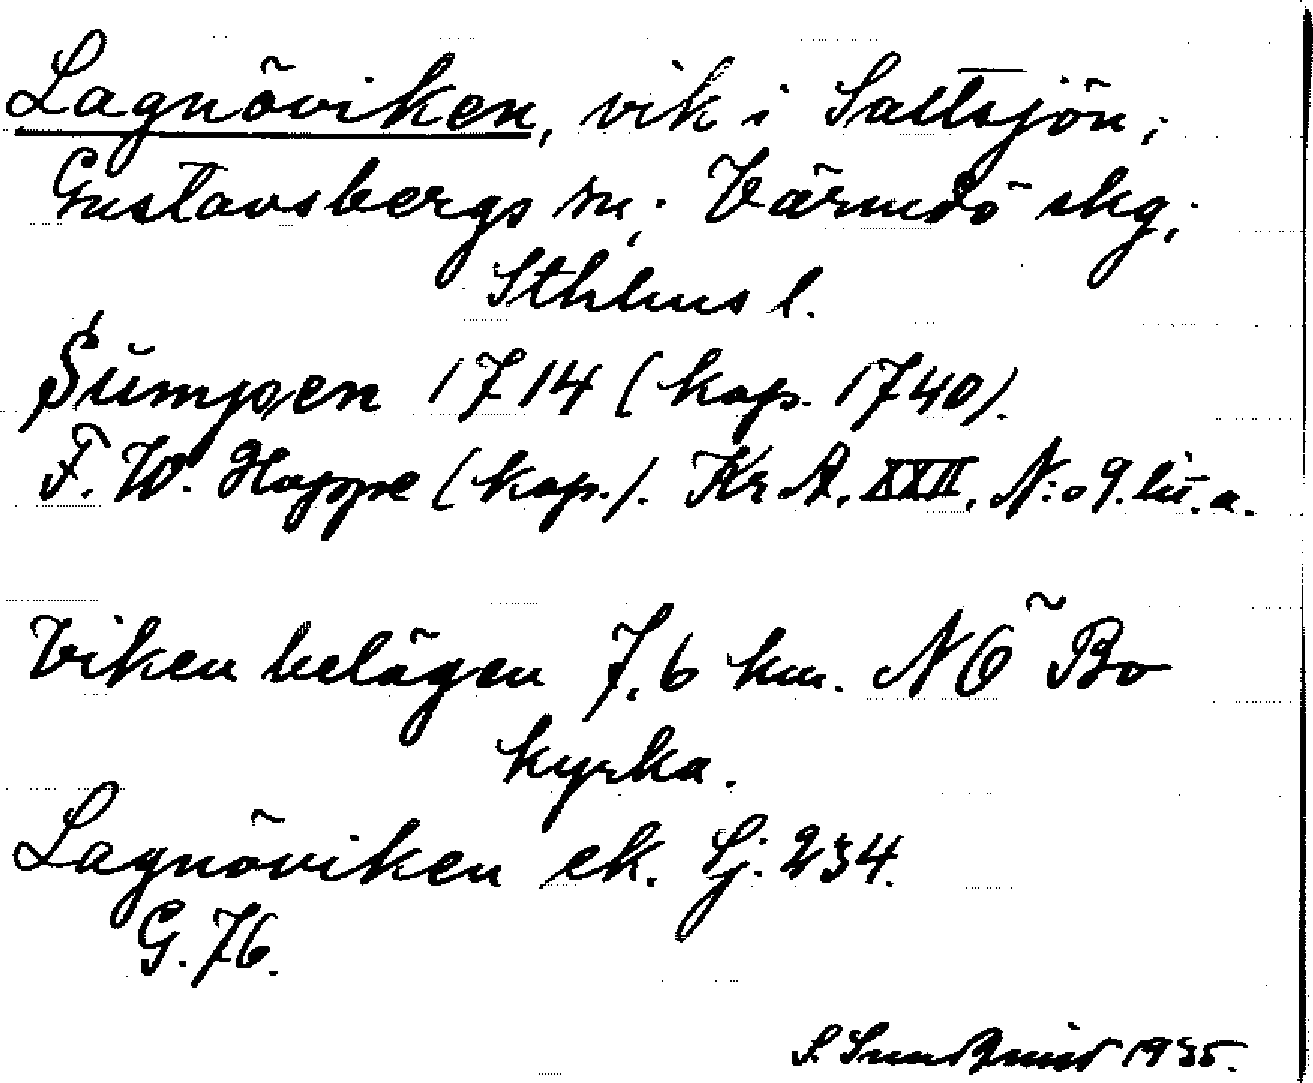 Lagnöviken, vik i Saltsjön;
Gustavsbergs sn; Värmdö skg;
Sthlms l.
Sumpen 1714 (kop. 1740).
F. W. Hoppe (kop.). Kr A. XXII. N:o 9. lit. a.
Viken belägen 7,6 km. NÖ Bo
kyrka.
Lagnöviken ek. Lj. 234.
G. 76.
S. 1935.